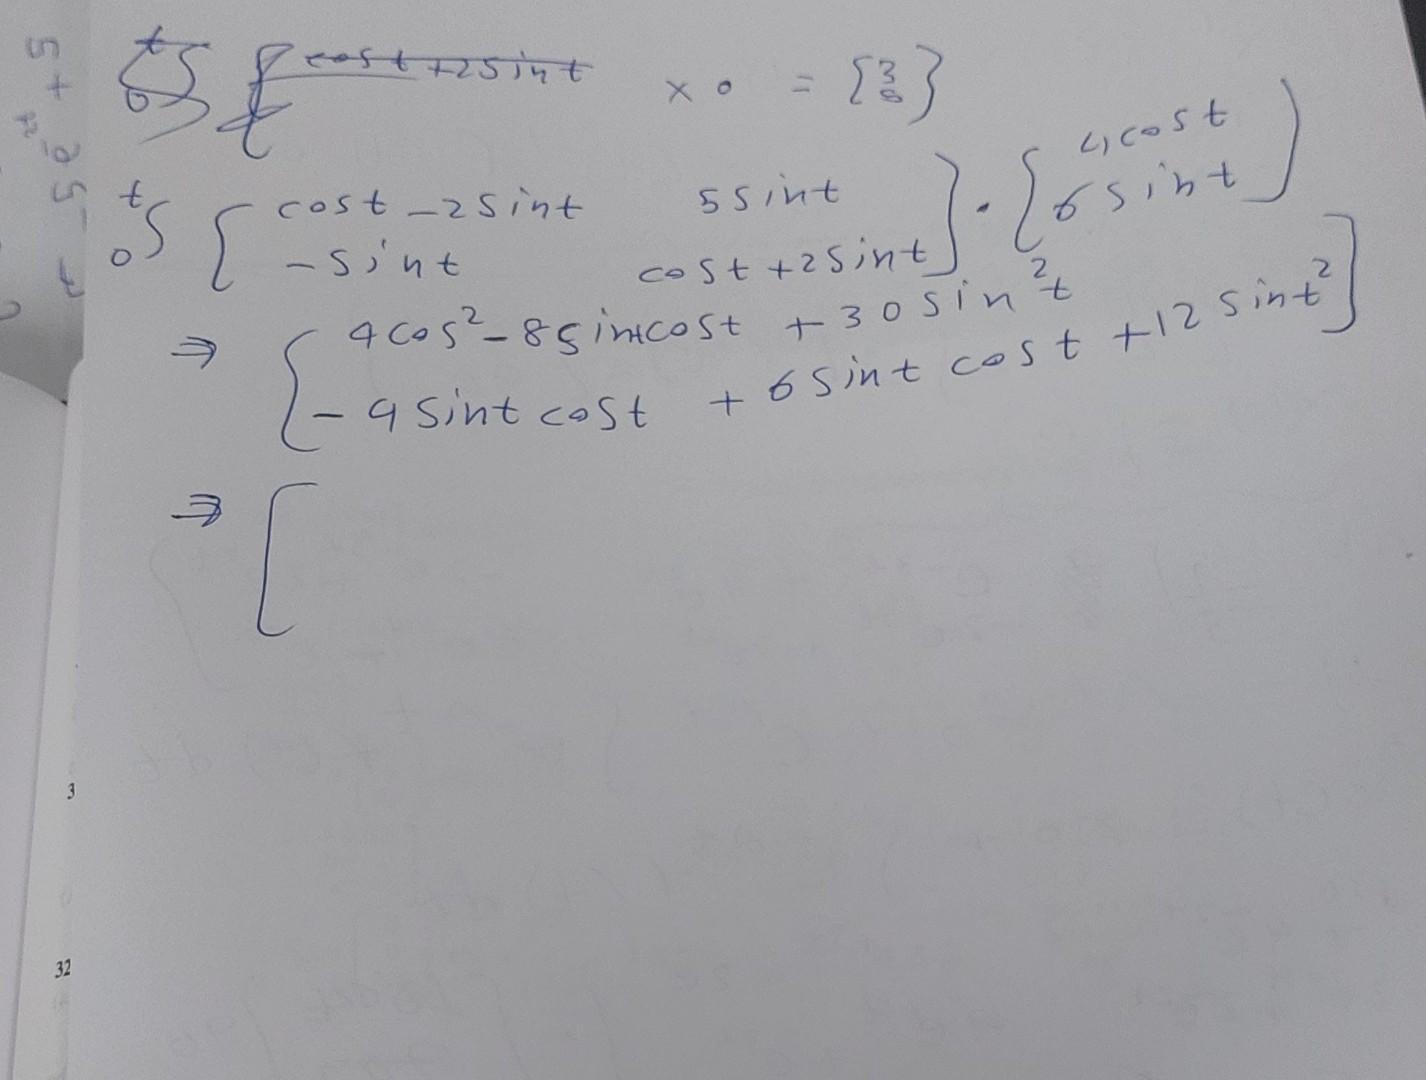 cost +2sint × 0 = [3 8]
t ∫ 0 [ cost -2sint 5sint ] . [ 4cost ]
-sint cost +2sint 6sint
⇒ [ 4cos² - 8sintcost + 30sin²t
-4sint cost + 6sint cost +12 sint² ]
⇒ [
3
32